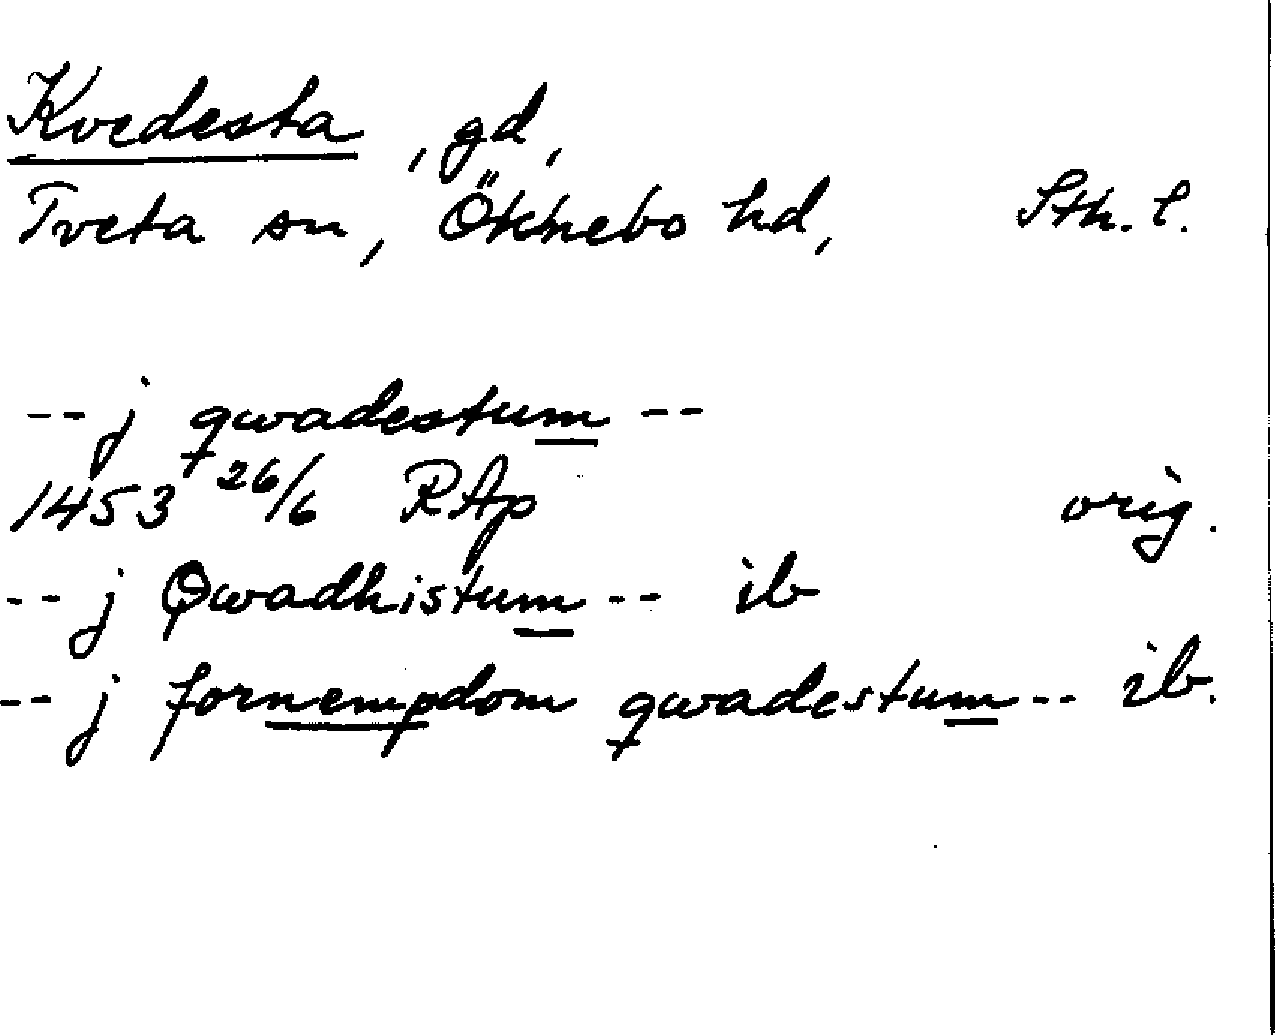 Kvedesta, gd,
Tveta sn, Öknebo hd, Sth. l.
-- j qwadestum --
1453 26/6 RAp orig.
-- j Qwadhistum -- ib
-- j fornempdom qwadestum -- ib.